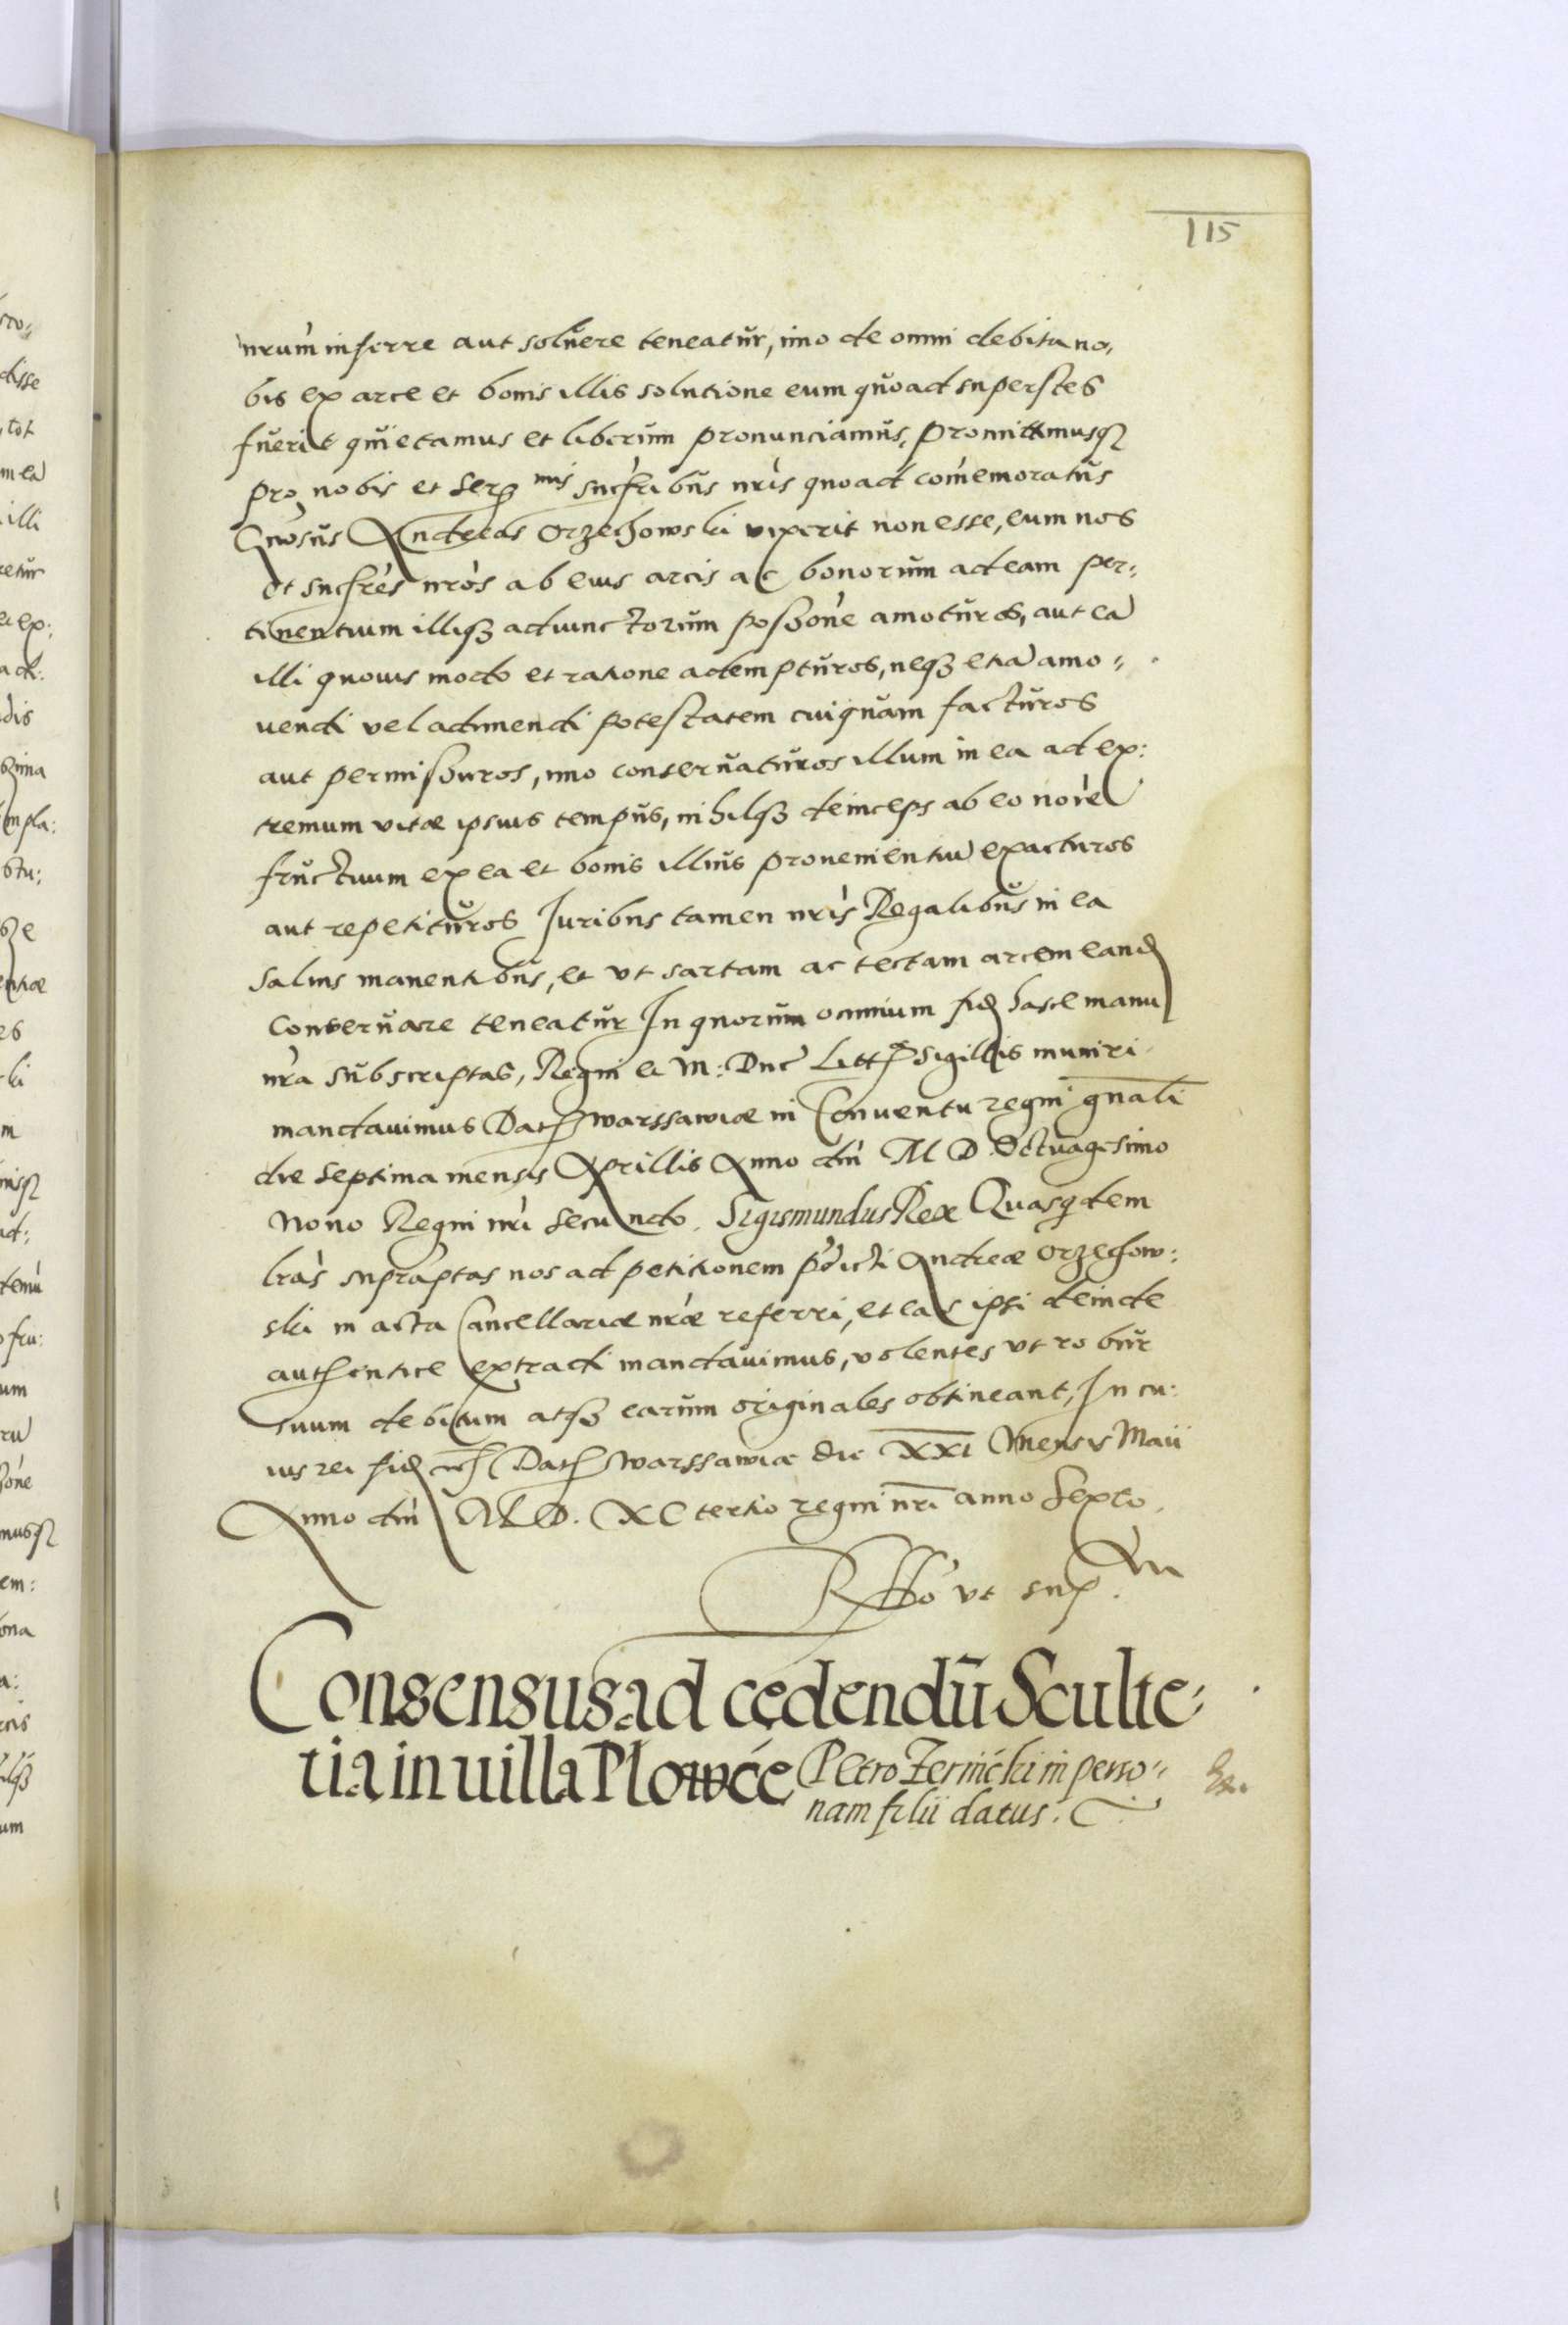 115
nrum inferre aut soluere teneatur, imo de omni debita no,
bis ex arce et bonis illis solutione eum quoad superstes
fuerit quietamus et liberum pronunciamus, Promittimusq
pro nobis et Ser mis sucribus nris quoad comemoratus
Gnosus Andreas Orzechowski vixerit non esse, eum nos
et sucres nros ab eius arcis ac bonorum ad eam per:
tinentium illiq adiunctorum possone amoturos, aut ea
illi quouis modo et ratione adempturos, neq etia amo:
uendi vel adimendi potestatem cuiquam facturos
aut permissuros, imo conseruaturos illum in ea ad ex:
tremum vitæ ipsius tempus, nihilq deinceps ab eo noie
fructuum ex ea et bonis illius prouenientiu exacturos
aut repetituros Juribus tamen nris Regalibus in ea
saluis manentibus, et vt sartam ac tectam arcem eand
conseruare teneatur In quorum omnium fid hasce manu
nra subscriptas, Regni et M: Duc Litt sigillis muniri
mandauimus Dat Warssawiæ in Conuentu regni gnali
die septima mensis Aprillis Anno dni M D Octuagesimo
Nono Regni nri secundo. Sigismundus Rex Quasqdem
lras supraptas nos ad petitionem pdicti Andreæ Orzechow:
ski in acta Cancellariæ nræ referri, et eas ipsi deinde
authentice extradi mandauimus, volentes vt robur
suum debitum atq earum originales obtineant, In cu:
ius rei fid Dat Warssawiæ die XXI Mensis Maii
Anno dni M.D. XC tertio regni nri anno Sexto.
Rsso vt sup.
Consensus ad cedendu Sculte:
tia in uilla Plowce Petro Zerinski in perso:
nam filii datus.